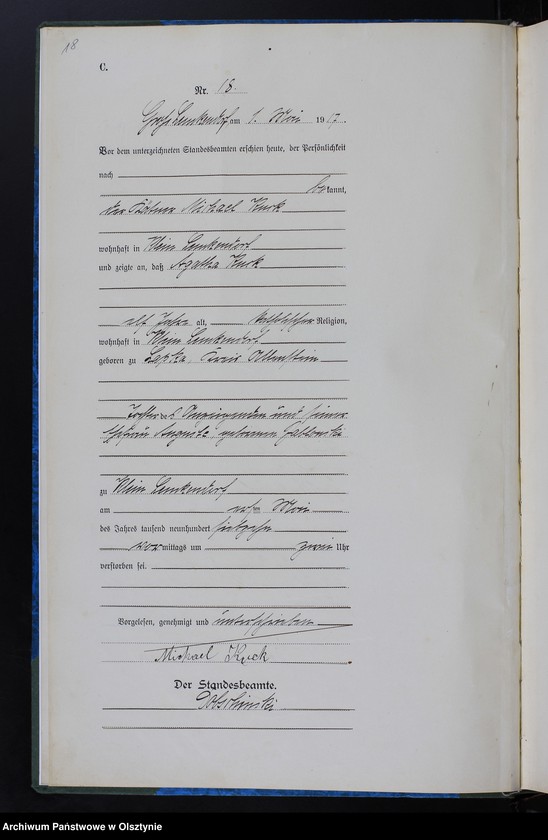 18
C.
Nr. 18.
Groß Lemkendorf am 1. Mai 1917.
Vor dem unterzeichneten Standesbeamten erschien heute, der Persönlichkeit
nach
bekannt,
der Kätner Michael Kuck
wohnhaft in Klein Lemkendorf
und zeigte an, daß Agatha Kuck
elf Jahre alt, katholischer Religion,
wohnhaft in Klein Lemkendorf
geboren zu Kreis Allenstein
Tochter des Anzeigenden und seiner
Ehefrau Auguste, geborenen Jablonski
zu Klein Lemkendorf
am ersten Mai
des Jahres tausend neunhundert siebzehn
vormittags um zwei Uhr
verstorben sei.
Vorgelesen, genehmigt und unterschrieben
Michael Kuck
Der Standesbeamte.
Archiwum Państwowe w Olsztynie